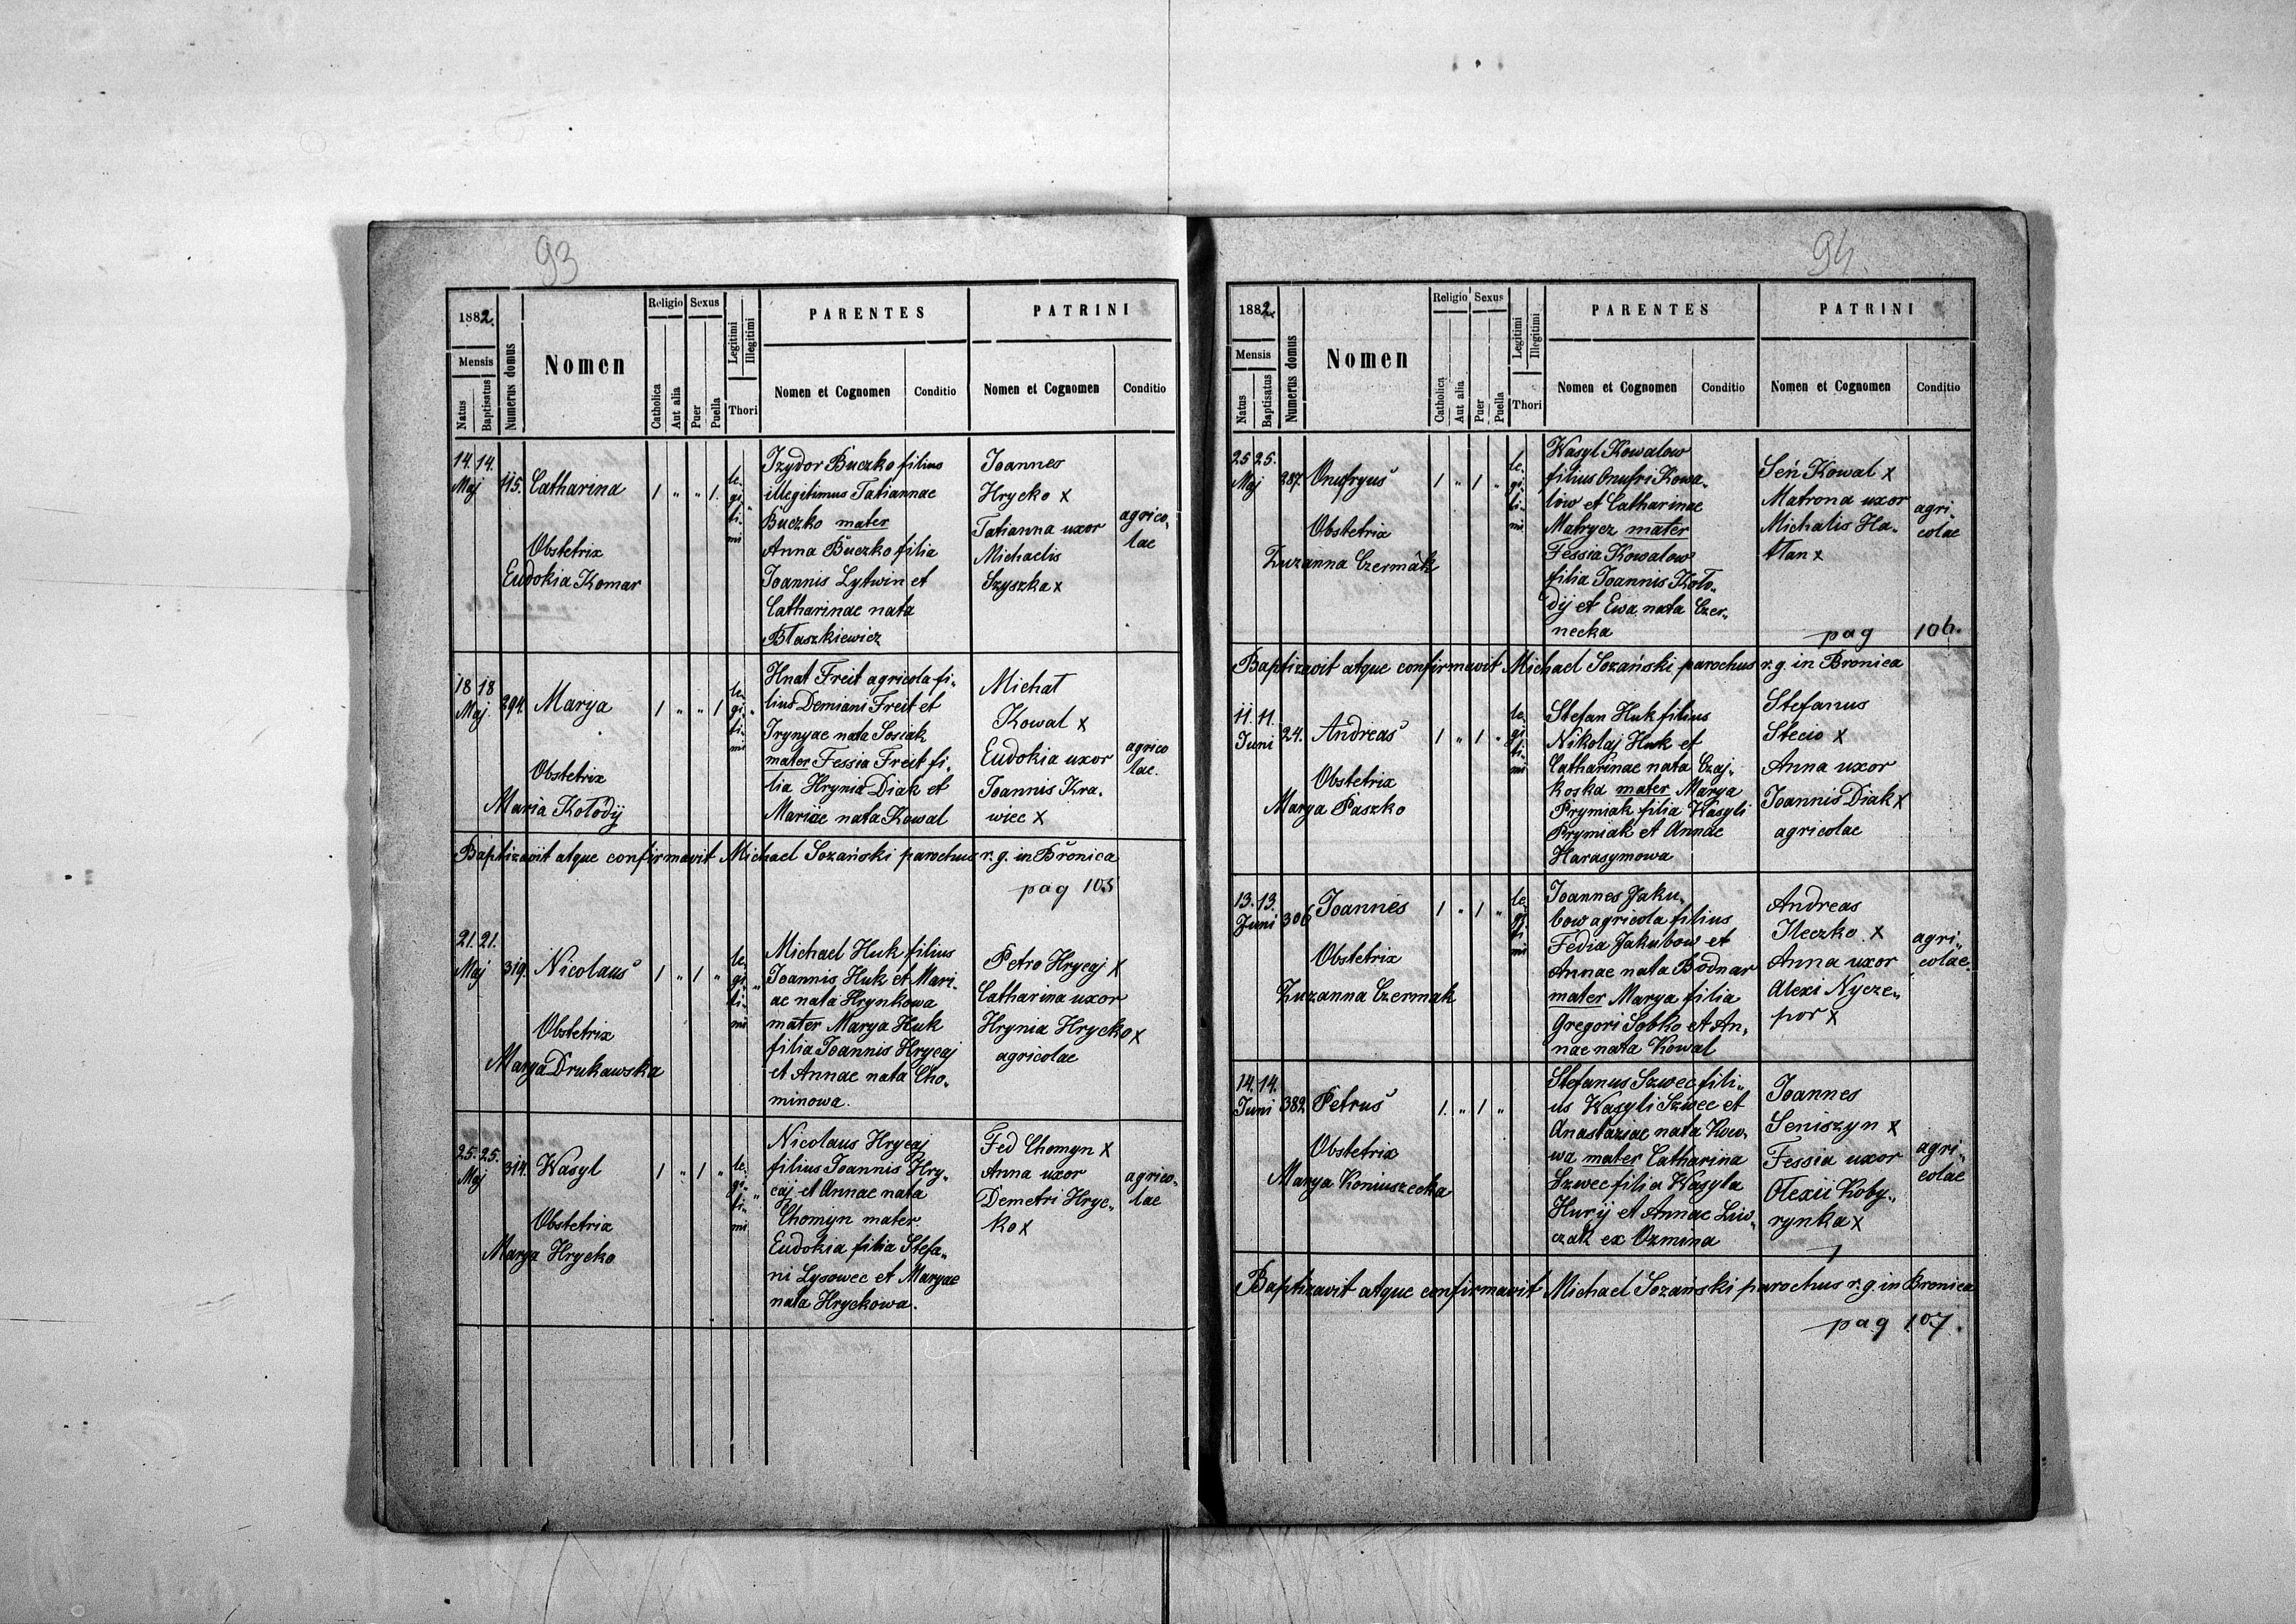 93
1882.
Mensis
Natus
Baptisatus
Numerus domus
Nomen
Religio
Catholica
Aut alia
Sexus
Puer
Puella
Legitimi
Illegitimi
Thori
PARENTES
Nomen et Cognomen
Conditio
PATRINI
Nomen et Cognomen
Conditio
14. 14.
Maj
115.
Catharina
Obstetrix
Eudokia Komar
1 " " 1.
le-
gi-
ti-
mi
Izydor Buczko filius
illegitimus Tatiannae
Buczko mater
Anna Buczko filia
Joannis Lytwin et
Catharinae nata
Błaszkiewicz
Joannes
Hrycko x
Tatianna uxor
Michaelis
Szyszka x
agrico-
lae
18 18
Maj.
294.
Marya
Obstetrix
Maria Kołodij
1 " " 1
le-
gi-
ti-
mi
Hnat Freit agricola fi-
lius Demiani Freit et
Irynyae nata Sosiak
mater Fessia Freit fi-
lia Hrynia Diak et
Mariae nata Kowal
Michał
Kowal x
Eudokia uxor
Joannis Kra-
wiec x
agrico
lae.
Baptizavit atque confirmavit Michael Sozański parochus r. g. in Bronica
pag 105
21. 21.
Maj
319.
Nicolaus
Obstetrix
Marya Drukawska
1 " 1 "
le-
gi-
ti-
mi
Michael Huk filius
Joannis Huk et Mari-
ae nata Hrynkowa
mater Marya Huk
filia Joannis Hrycaj
et Annae nata Cho-
minowa.
Petro Hrycaj x
Catharina uxor
Hrynia Hrycko x
agricolae
25. 25.
Maj
314.
Wasyl
Obstetrix
Marya Hrycko
1 " 1 "
le-
gi-
ti-
mi
Nicolaus Hrycaj
filius Joannis Hry-
caj et Annae nata
Chomyn mater
Eudokia filia Stefa-
ni Lysowec et Maryae
nata Hryckowa.
Fed Chomyn x
Anna uxor
Demetri Hryc-
ko x
agrico-
lae
94.
1882.
Mensis
Natus
Baptisatus
Numerus domus
Nomen
Religio
Catholica
Aut alia
Sexus
Puer
Puella
Legitimi
Illegitimi
Thori
PARENTES
Nomen et Cognomen
Conditio
PATRINI
Nomen et Cognomen
Conditio
25 25.
Maj
287.
Onufryus
Obstetrix
Zuzanna Czermak
1 " 1 "
le-
gi-
ti-
mi
Wasyl Kowalow
filius Onufri Kowa-
low et Catharinae
Matrycz mater
Fessia Kowalow
filia Joannis Koło-
dij et Ewa nata Czer-
necka
Seń Kowal x
Matrona uxor
Michalis Ha-
tlan x
agri-
colae
pag 106.
Baptizavit atque confirmavit Michael Sozański parochus r. g. in Bronica
11. 11.
Juni
24.
Andreas
Obstetrix
Marya Paszko
1 " 1 "
le-
gi-
ti-
mi
Stefan Huk filius
Nikolaj Huk et
Catharinae nata Czaj-
koska mater Marya
Prymiak filia Wasyli
Prymiak et Annae
Harasymowa
Stefanus
Stecio x
Anna uxor
Joannis Diak x
agricolae
13. 13.
Juni
306
Joannes
Obstetrix
Zuzanna Czermak
1 " 1 "
le-
gi-
ti-
mi
Joannes Jaku-
bow agricola filius
Fedia Jakubow et
Annae nata Bodnar
mater Marya filia
Gregori Sobko et An-
nae nata Kowal
Andreas
Ileczko x
Anna uxor
Alexi Nycze-
por x
agri-
colae.
14. 14.
Juni
382
Petrus
Obstetrix
Marya Koniuszecka
1. " 1 "
Stefanus Szwec fili-
us Wasyli Szwec et
Anastaziae nata Kow-
wa mater Catharina
Szwec filia Wasyla
Huryj et Annae Liw-
czak ex Ozmina
Joannes
Seniszyn x
Fessia uxor
Olexii Koby-
rynka x
agri-
colae
Baptizavit atque confirmavit Michael Sozański parochus r. g. in Bronica
pag 107.